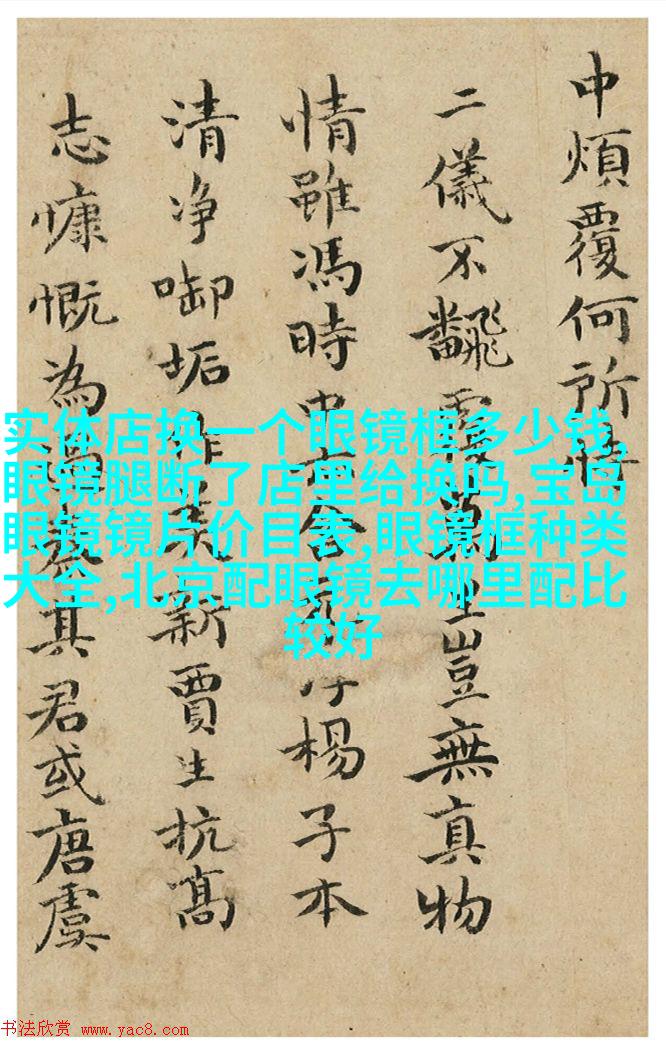 中煩覆何所悟
二儀不飜覆萬生豈無真物
情雖馮時中
楊子本
清净啣垢
新賈生抗高
志慷慨為
其君或唐虞
实体店换一个眼镜框多少钱,
眼镜腿断了店里给换吗,宝岛
眼镜镜片价目表,眼镜框种类
大全,北京配眼镜去哪里配比
较好
书法欣赏 www.yac8.com